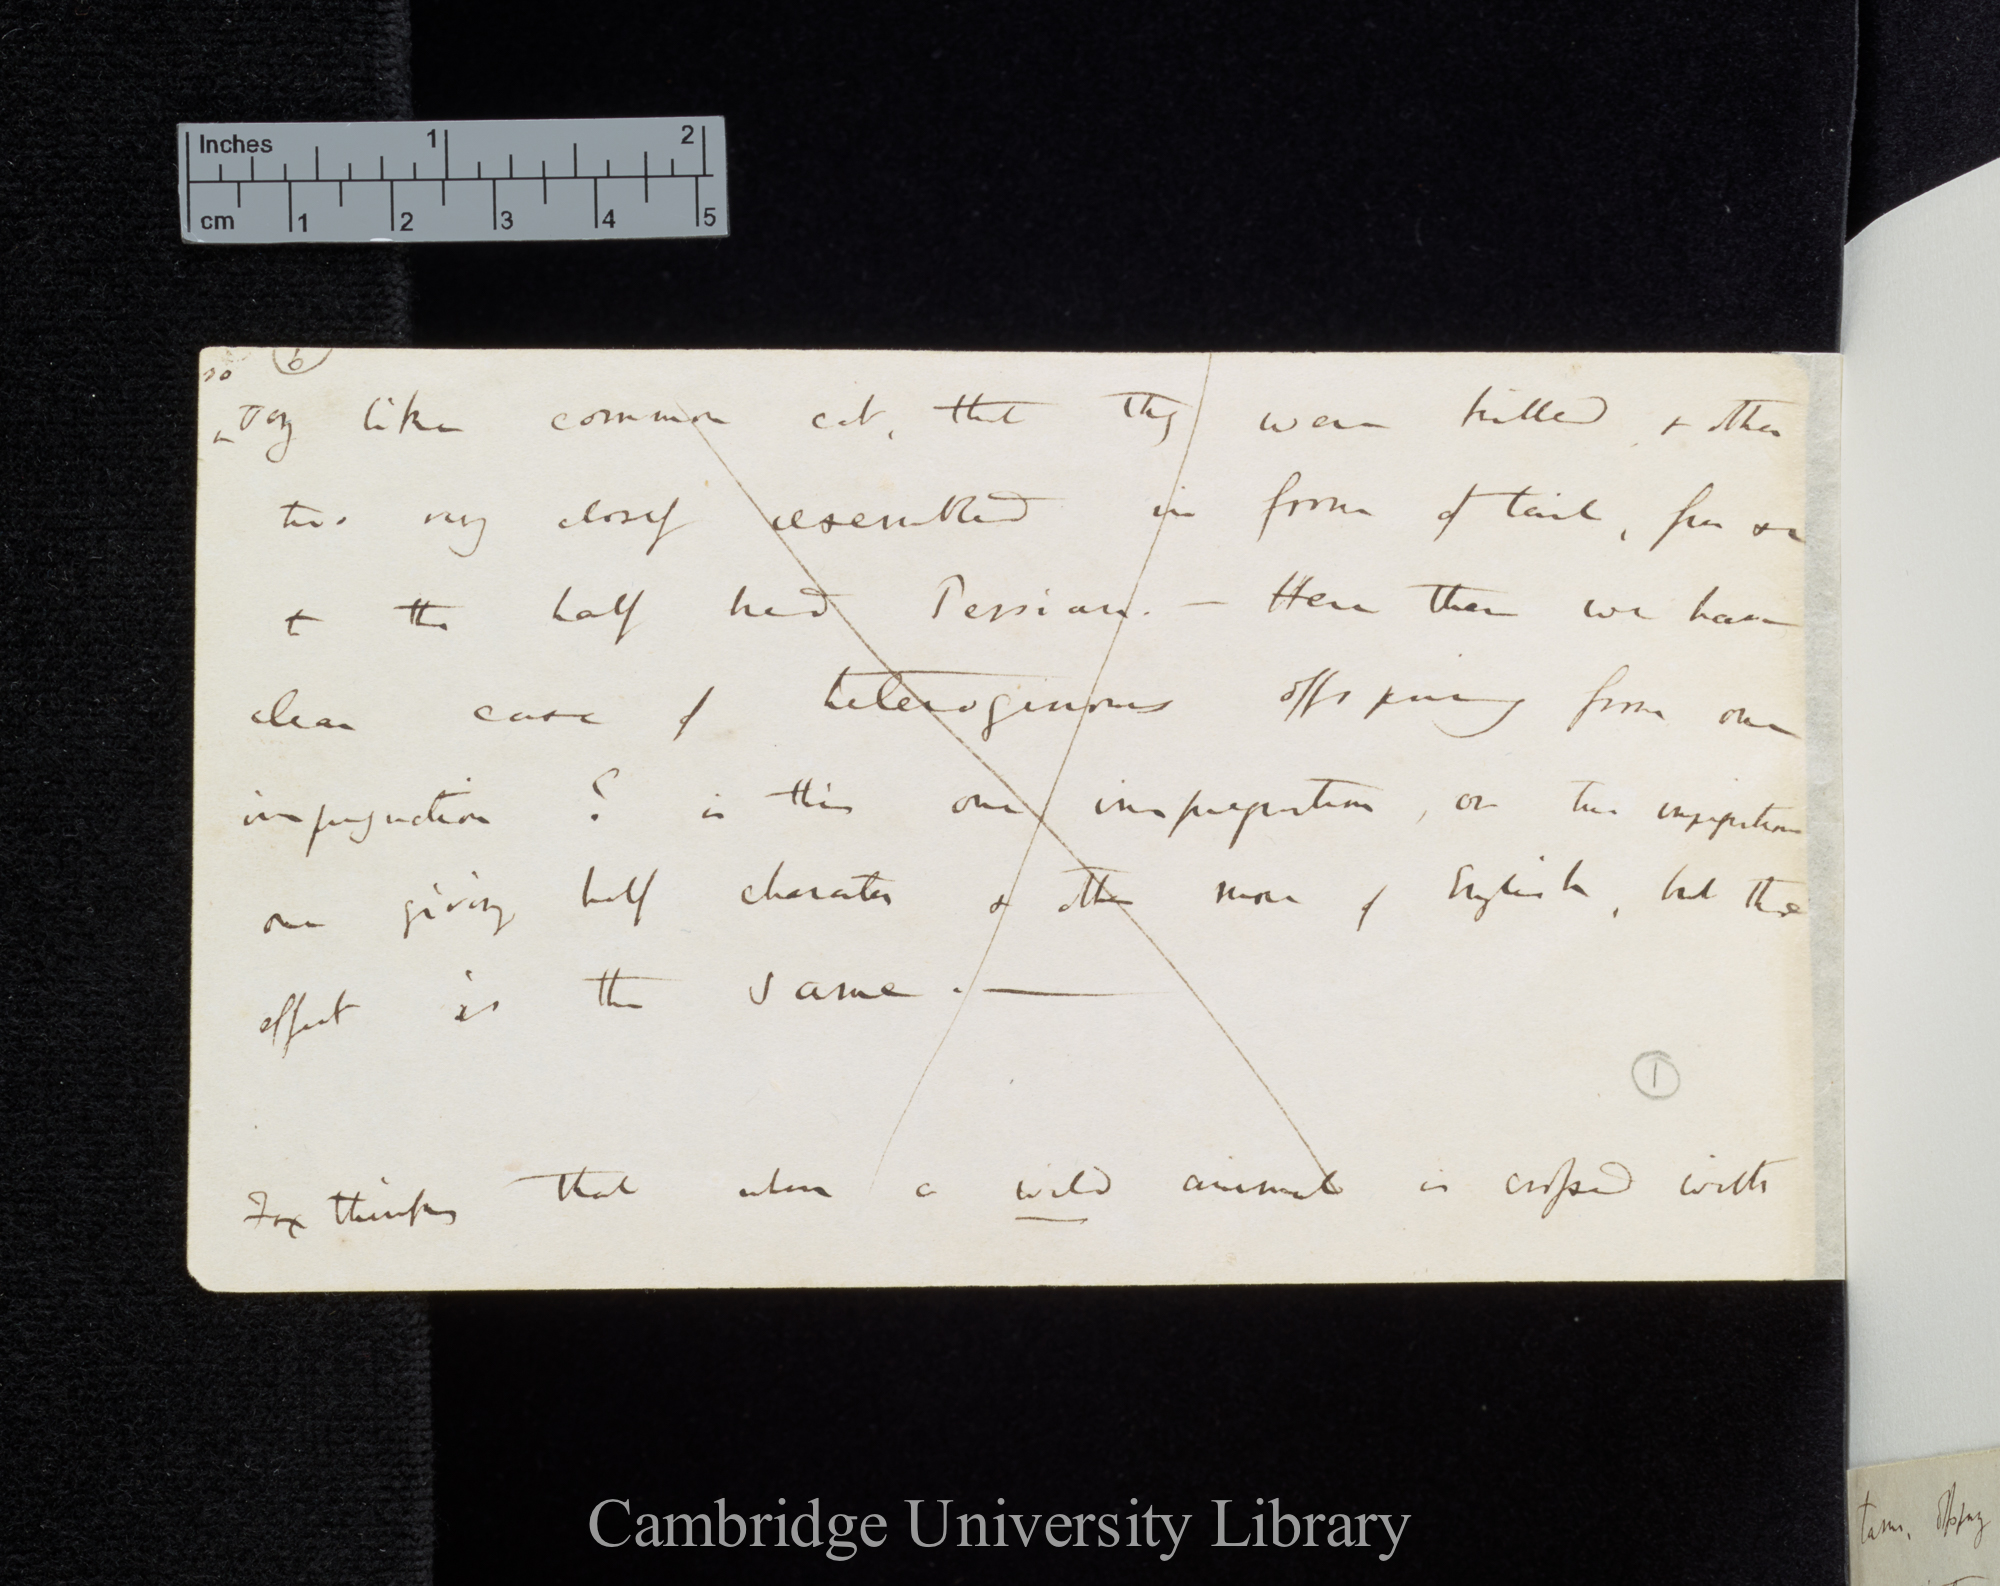 Inches 1 2
cm 1 2 3 4 5
6
so
very like common cat, that they were killed, & other
two very closely resembled in form of tail, fur &c
& the half bred Persian. — Here then we have
clear case of heteroginous offspring from one
impregnation? is this one impregnation, or two impregnations
one giving half character & other more of English, but the
effect is the same. —
1
Fox thinks that when a wild animal is crossed with
Cambridge University Library
tame. offspring